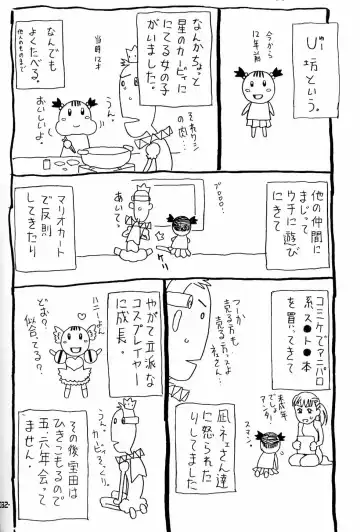 今から
12年前
びー
U坊という。
なんかちょっと
星のカービィに
にてる女の子
がいました。
それワシ
の肉…
うん。
おいしいよ。
当時12才
なんでも
よくたべる。
他人のものまで
他の仲間に
まじって
ウチに遊び
にきて
ブロロロ…
あいて。
ケリ
マリオカート
で反則
してきたり
コミケでアニパロ
系ス●ト●本
を買ってきて
未成年
でしょ
アンタ!
スマン。
凪ネェさん達
に怒られた
りしてました。
つーか
売る方も
売る方よ
ねェ…
やがて立派な
コスプレイヤー
に成長。
ハニーよ
どお?
似合ってる?
うん、カービィそっくり。
その後室田は
ひきこもるので
五・六年会って
ません。